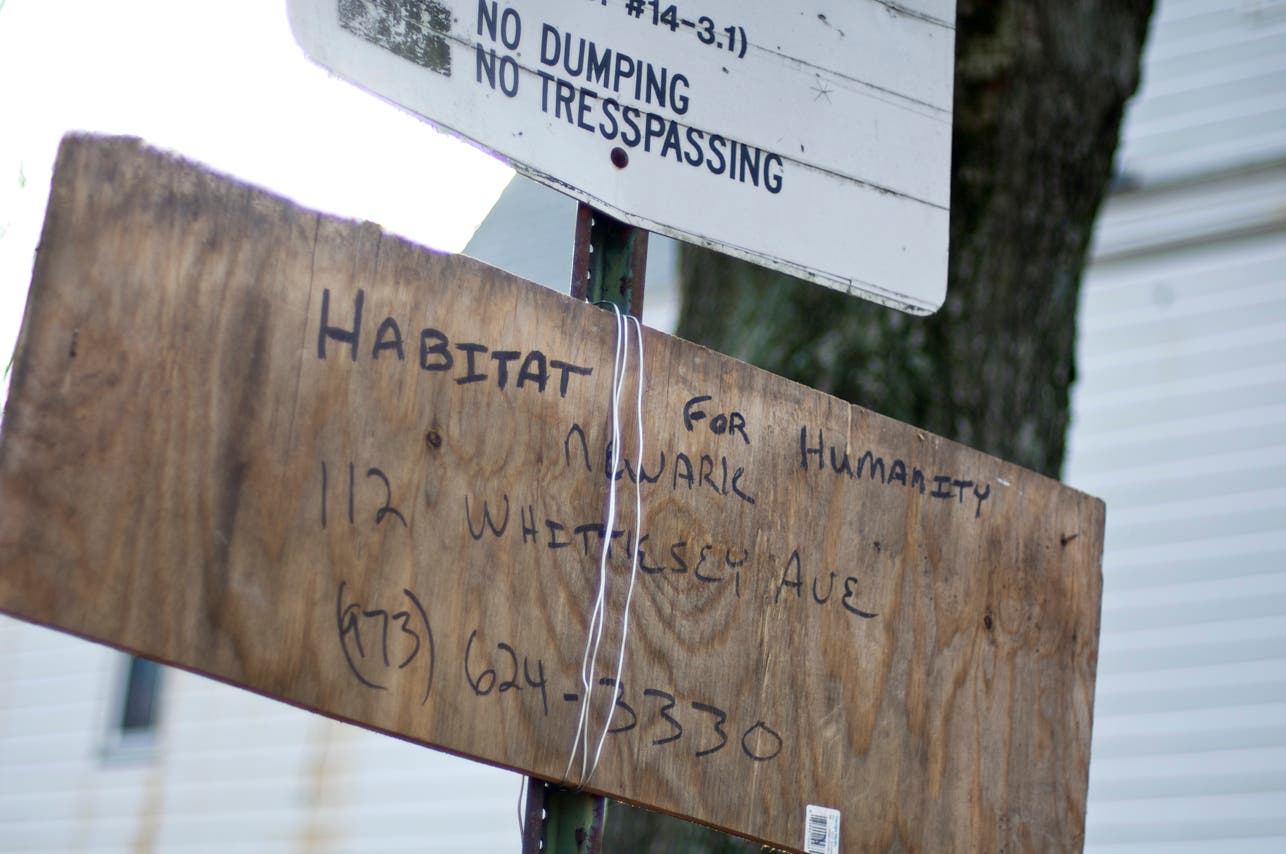 #14-3.1)
NO DUMPING
NO TRESSPASSING
HABITAT FOR HUMANITY
NEWARK
112 WHITTLESEY AVE
(973) 624-3330